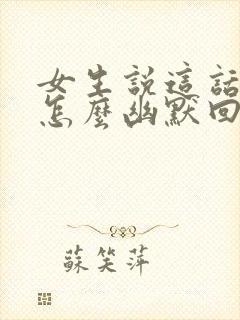 女生説這話
怎麼幽默回
蘇笑萍